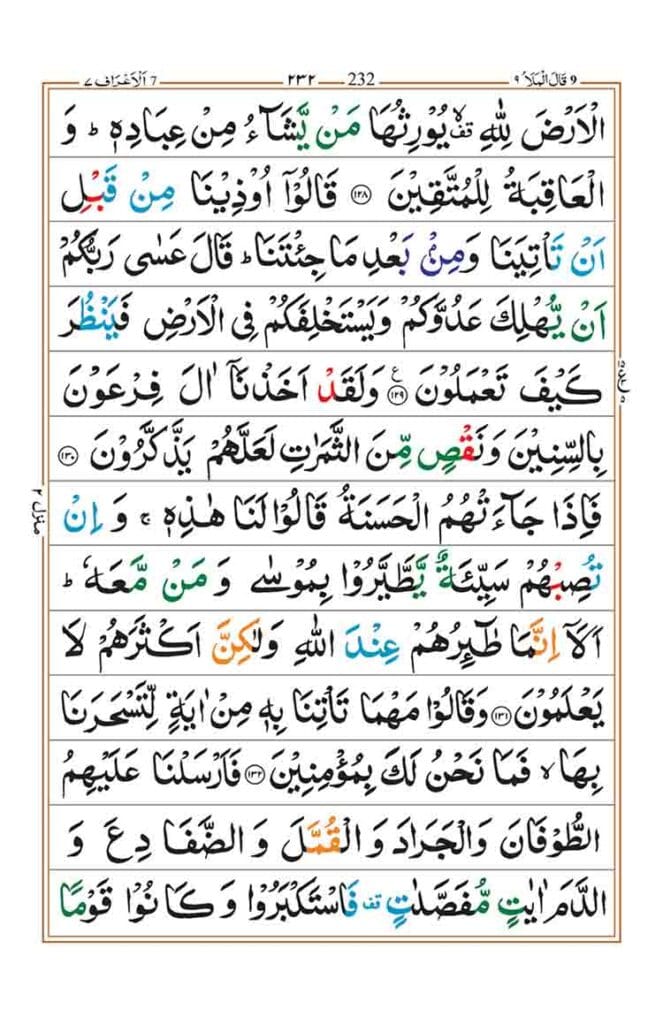 قَالَ الْمَلَاُ ٩ 9 232 ٢٣٢ 7 اَلْاَعْرَاف ٧
الْاَرْضَ لِلّٰهِ ۙ قف یُوْرِثُهَا مَنْ یَّشَآءُ مِنْ عِبَادِهٖ ؕ وَ
الْعَاقِبَةُ لِلْمُتَّقِیْنَ ۝١٢٨ قَالُوْۤا اُوْذِیْنَا مِنْ قَبْلِ
اَنْ تَاْتِیَنَا وَمِنْۢ بَعْدِ مَا جِئْتَنَا ؕ قَالَ عَسٰی رَبُّكُمْ
اَنْ یُّهْلِكَ عَدُوَّكُمْ وَیَسْتَخْلِفَكُمْ فِی الْاَرْضِ فَیَنْظُرَ
كَیْفَ تَعْمَلُوْنَ ۝١٢٩ ع وَلَقَدْ اَخَذْنَاۤ اٰلَ فِرْعَوْنَ
بِالسِّنِیْنَ وَنَقْصٍ مِّنَ الثَّمَرٰتِ لَعَلَّهُمْ یَذَّكَّرُوْنَ ۝١٣٠
فَاِذَا جَآءَتْهُمُ الْحَسَنَةُ قَالُوْا لَنَا هٰذِهٖ ۚ وَ اِنْ
تُصِبْهُمْ سَیِّئَةٌ یَّطَّیَّرُوْا بِمُوْسٰی وَ مَنْ مَّعَهٗ ؕ
اَلَاۤ اِنَّمَا طٰٓىِٕرُهُمْ عِنْدَ اللّٰهِ وَلٰكِنَّ اَكْثَرَهُمْ لَا
یَعْلَمُوْنَ ۝١٣١ وَقَالُوْا مَهْمَا تَاْتِنَا بِهٖ مِنْ اٰیَةٍ لِّتَسْحَرَنَا
بِهَا ۙ فَمَا نَحْنُ لَكَ بِمُؤْمِنِیْنَ ۝١٣٢ فَاَرْسَلْنَا عَلَیْهِمُ
الطُّوْفَانَ وَالْجَرَادَ وَ الْقُمَّلَ وَ الضَّفَادِعَ وَ
الدَّمَ اٰیٰتٍ مُّفَصَّلٰتٍ قف فَاسْتَكْبَرُوْا وَ كَانُوْا قَوْمًا
منزل ٢